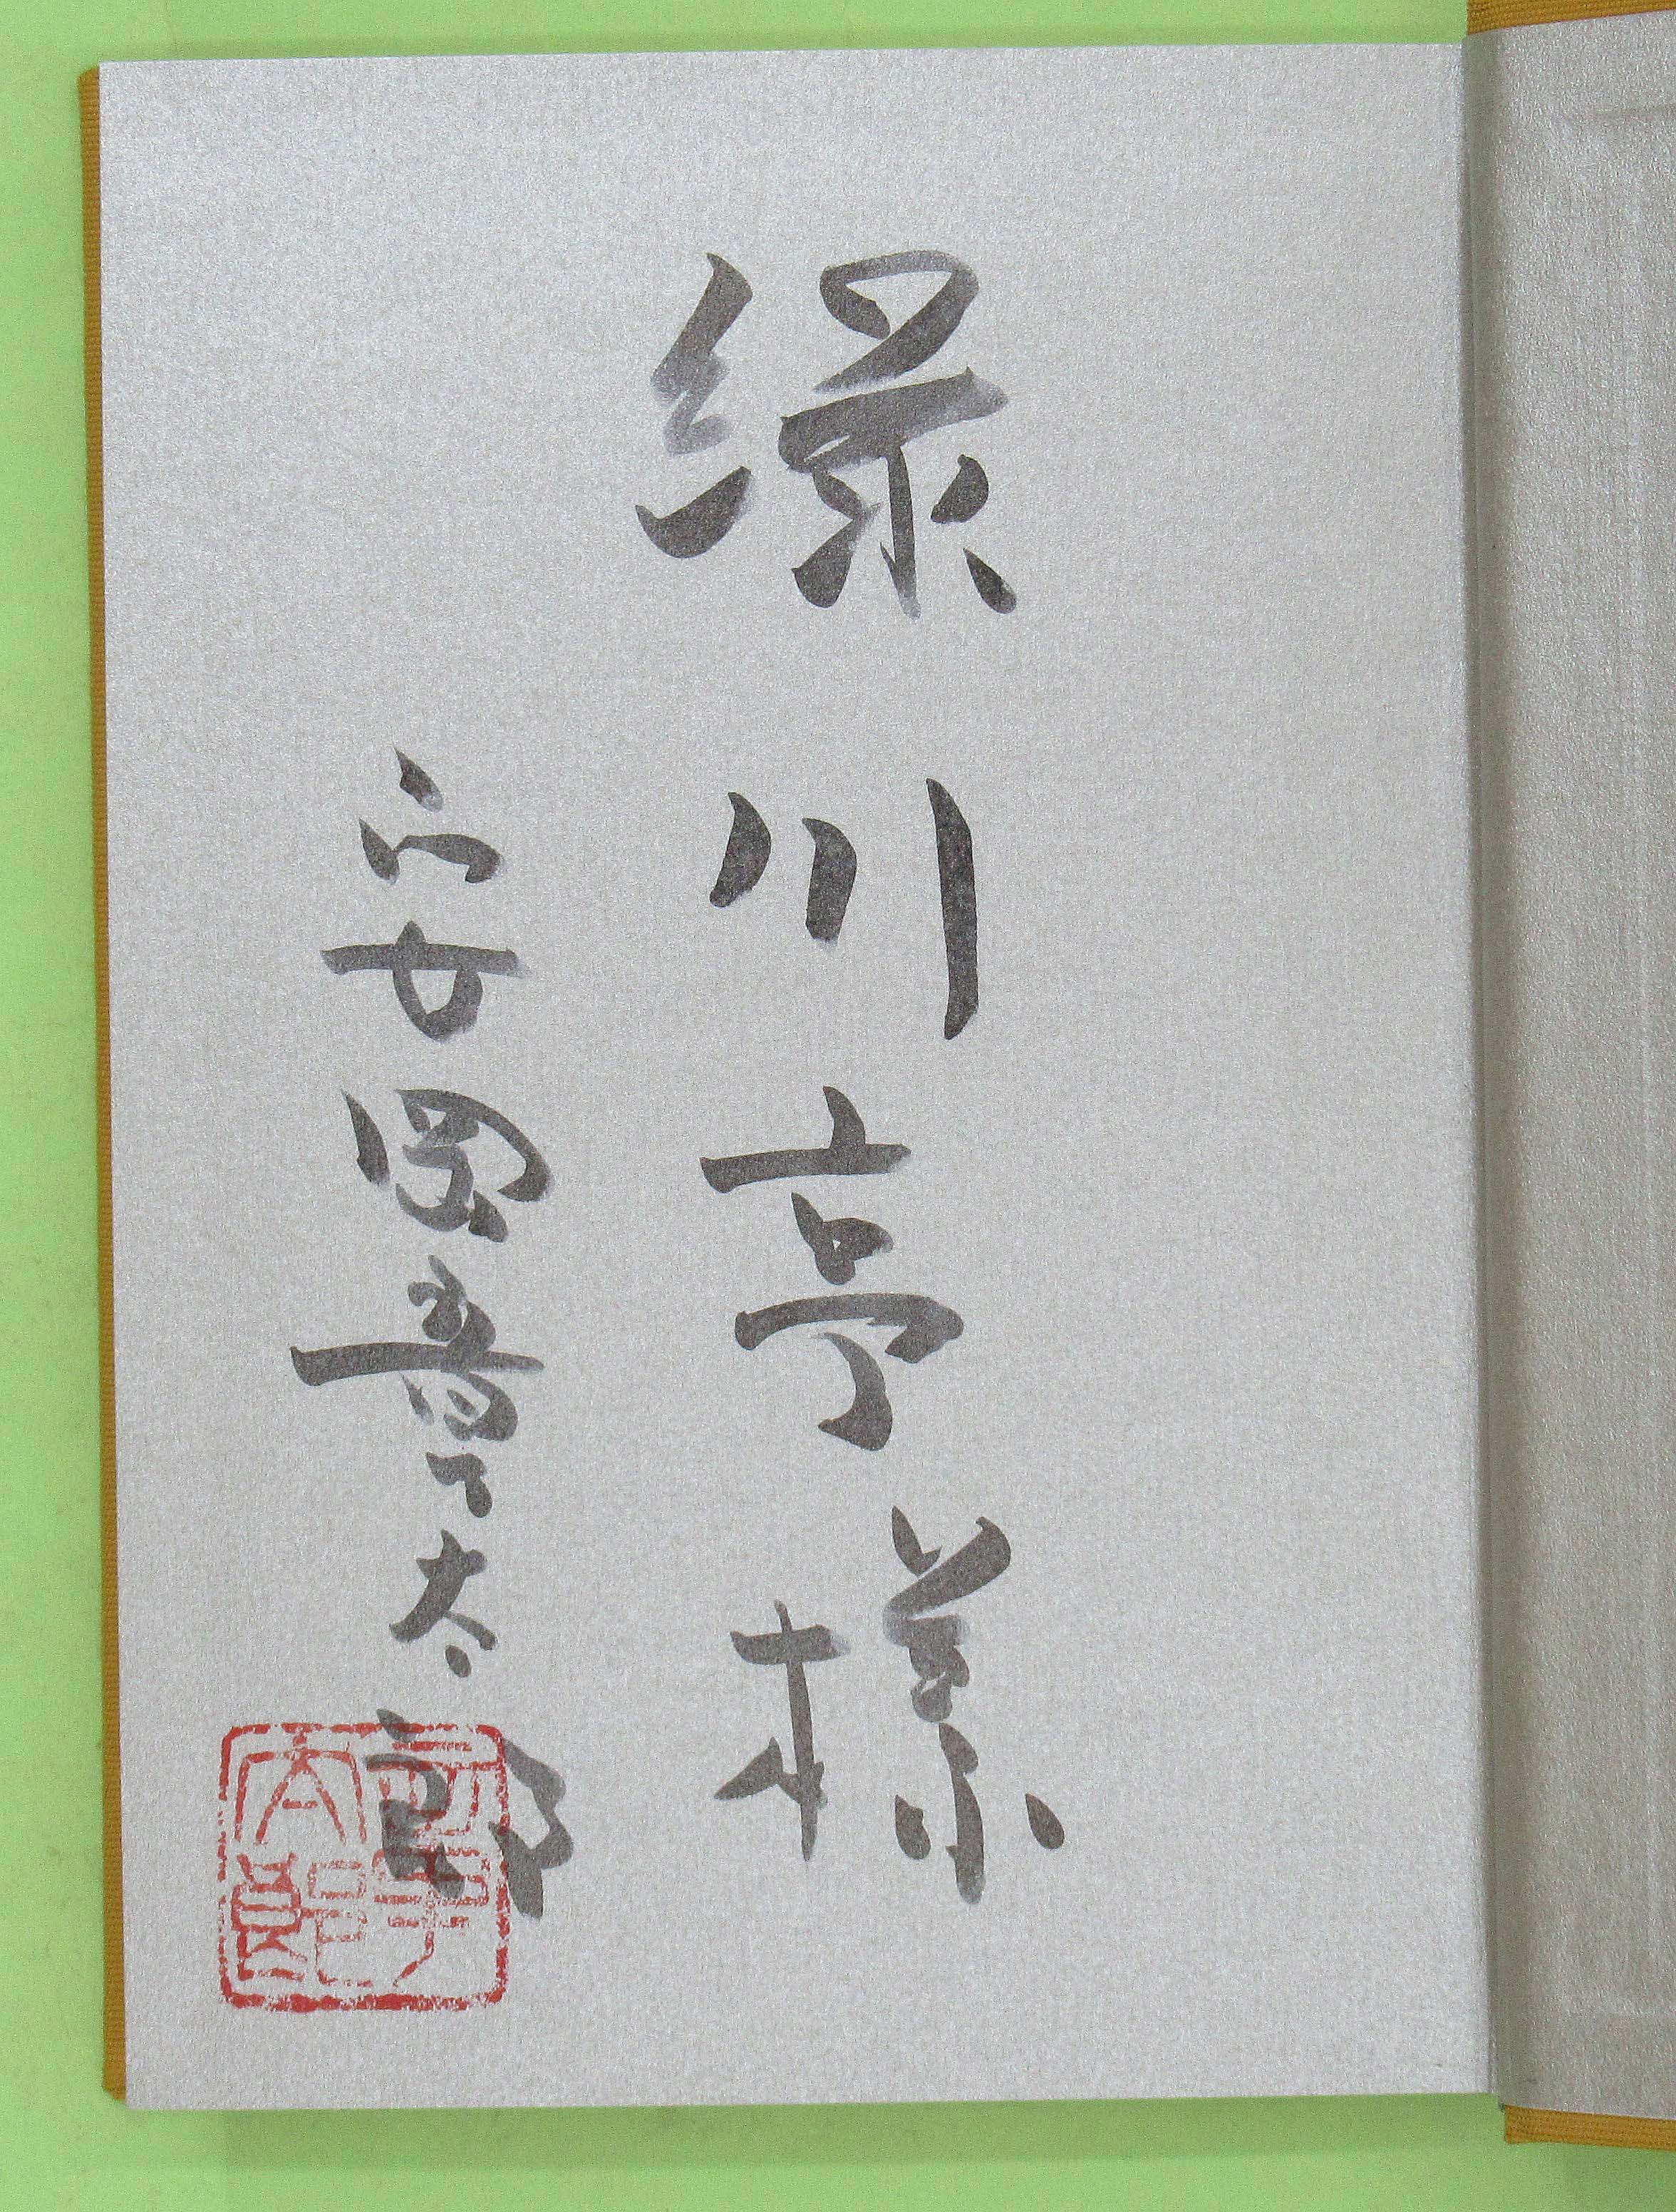 緑川亭様
安岡章太郎